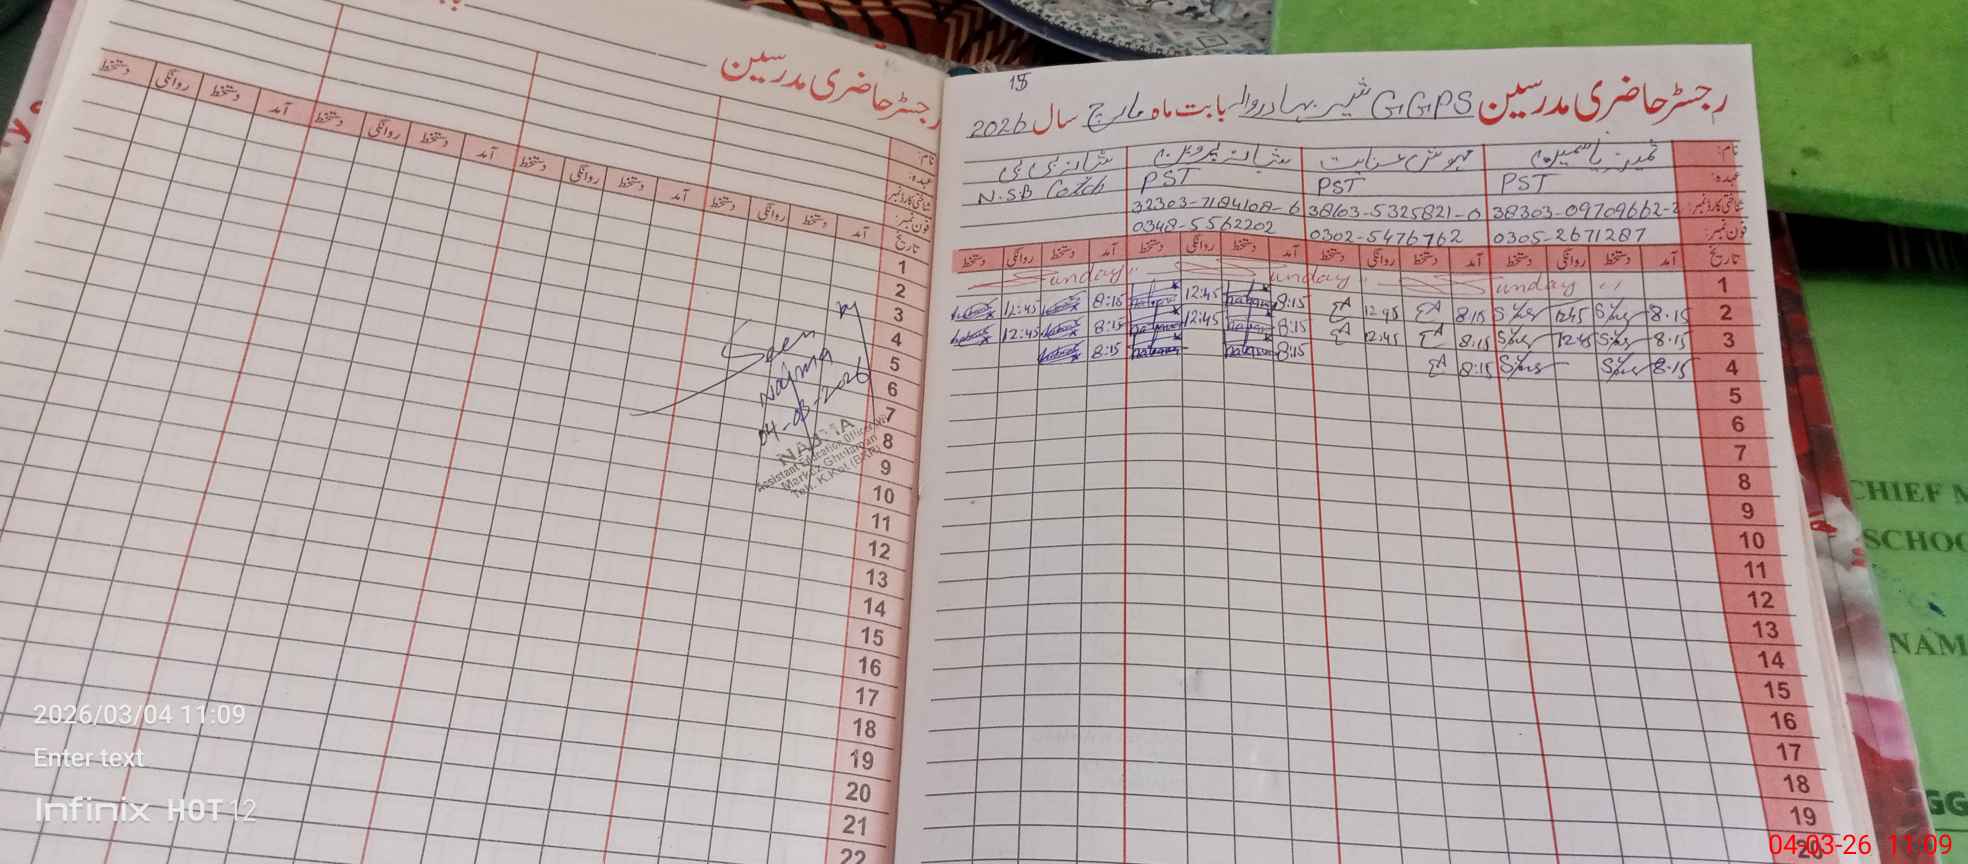 رجسٹر حاضری مدرسین
دستخط روانگی دستخط آمد دستخط روانگی دستخط آمد دستخط روانگی دستخط آمد دستخط روانگی دستخط آمد
نام:
عہدہ:
شناختی کارڈ نمبر:
فون نمبر:
تاریخ
1
2
3
4
5
6
7
8
9
10
11
12
13
14
15
16
17
18
19
20
21
22
Seen
Najma
04-03-2026
NAJMA
Assistant Education Officer
Markaz Ghulaman
Teh. K.Kot (BKR)
رجسٹر حاضری مدرسین GGPS شیر بہادر والا بابت ماہ مارچ سال 2026
نام: ثمینہ یاسمین مہوش عنایت شبانہ پروین شبانہ بی بی
عہدہ: PST PST PST N.S.B Coach
شناختی کارڈ نمبر: 38303-09709662-2 38103-5325821-0 32303-7184108-6
فون نمبر: 0305-2671287 0302-5476762 0348-5562202
تاریخ آمد دستخط روانگی دستخط آمد دستخط روانگی دستخط آمد دستخط روانگی دستخط آمد دستخط روانگی دستخط
1 Sunday Sunday Sunday
2 8.15 12:45 8:15 12:45 8:15 12:45 8:15 12:45
3 8.15 12:45 8:15 12:45 8:15 12:45 8:15 12:45
4 8.15 8:15 8:15 8:15
5
6
7
8
9
10
11
12
13
14
15
16
17
18
19
20
CHIEF M
SCHOO
NAM
GG
2026/03/04 11:09
Enter text
Infinix HOT 12
04-03-26 11:09